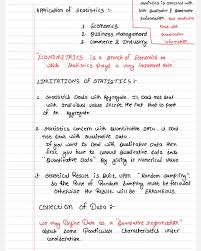 Statistics is concerned with
both Qualitative & Quantitative
information but
deal with
Quantitative
information.
Application of Statistics :-
1. Economics
2. Business Management
3. Commerce & Industry.
"ECONOMETRICS is a branch of Economics in
which Statistics plays a very important role.
LIMITATIONS OF STATISTICS :-
1. Statistics Deals with Aggregate. It Does not Deal
with Individual value Despite the fact that is part
of an Aggregate.
2. Statistics concern with Quantitative Data. It Does
not Deal with Qualitative Data.
If you want to Deal with Qualitative Data then
first you have to convert Qualitative Data into
"Quantitative Data" by giving it Numerical value
3. Statistical Result is built upon "Random Sampling".
So the Rules of Random Sampling must be
Otherwise the Results will be ERRONEOUS.
Collection of Data :-
We may Define Data as a Quantitative Information
about Some Particular Characteristics under
consideration.